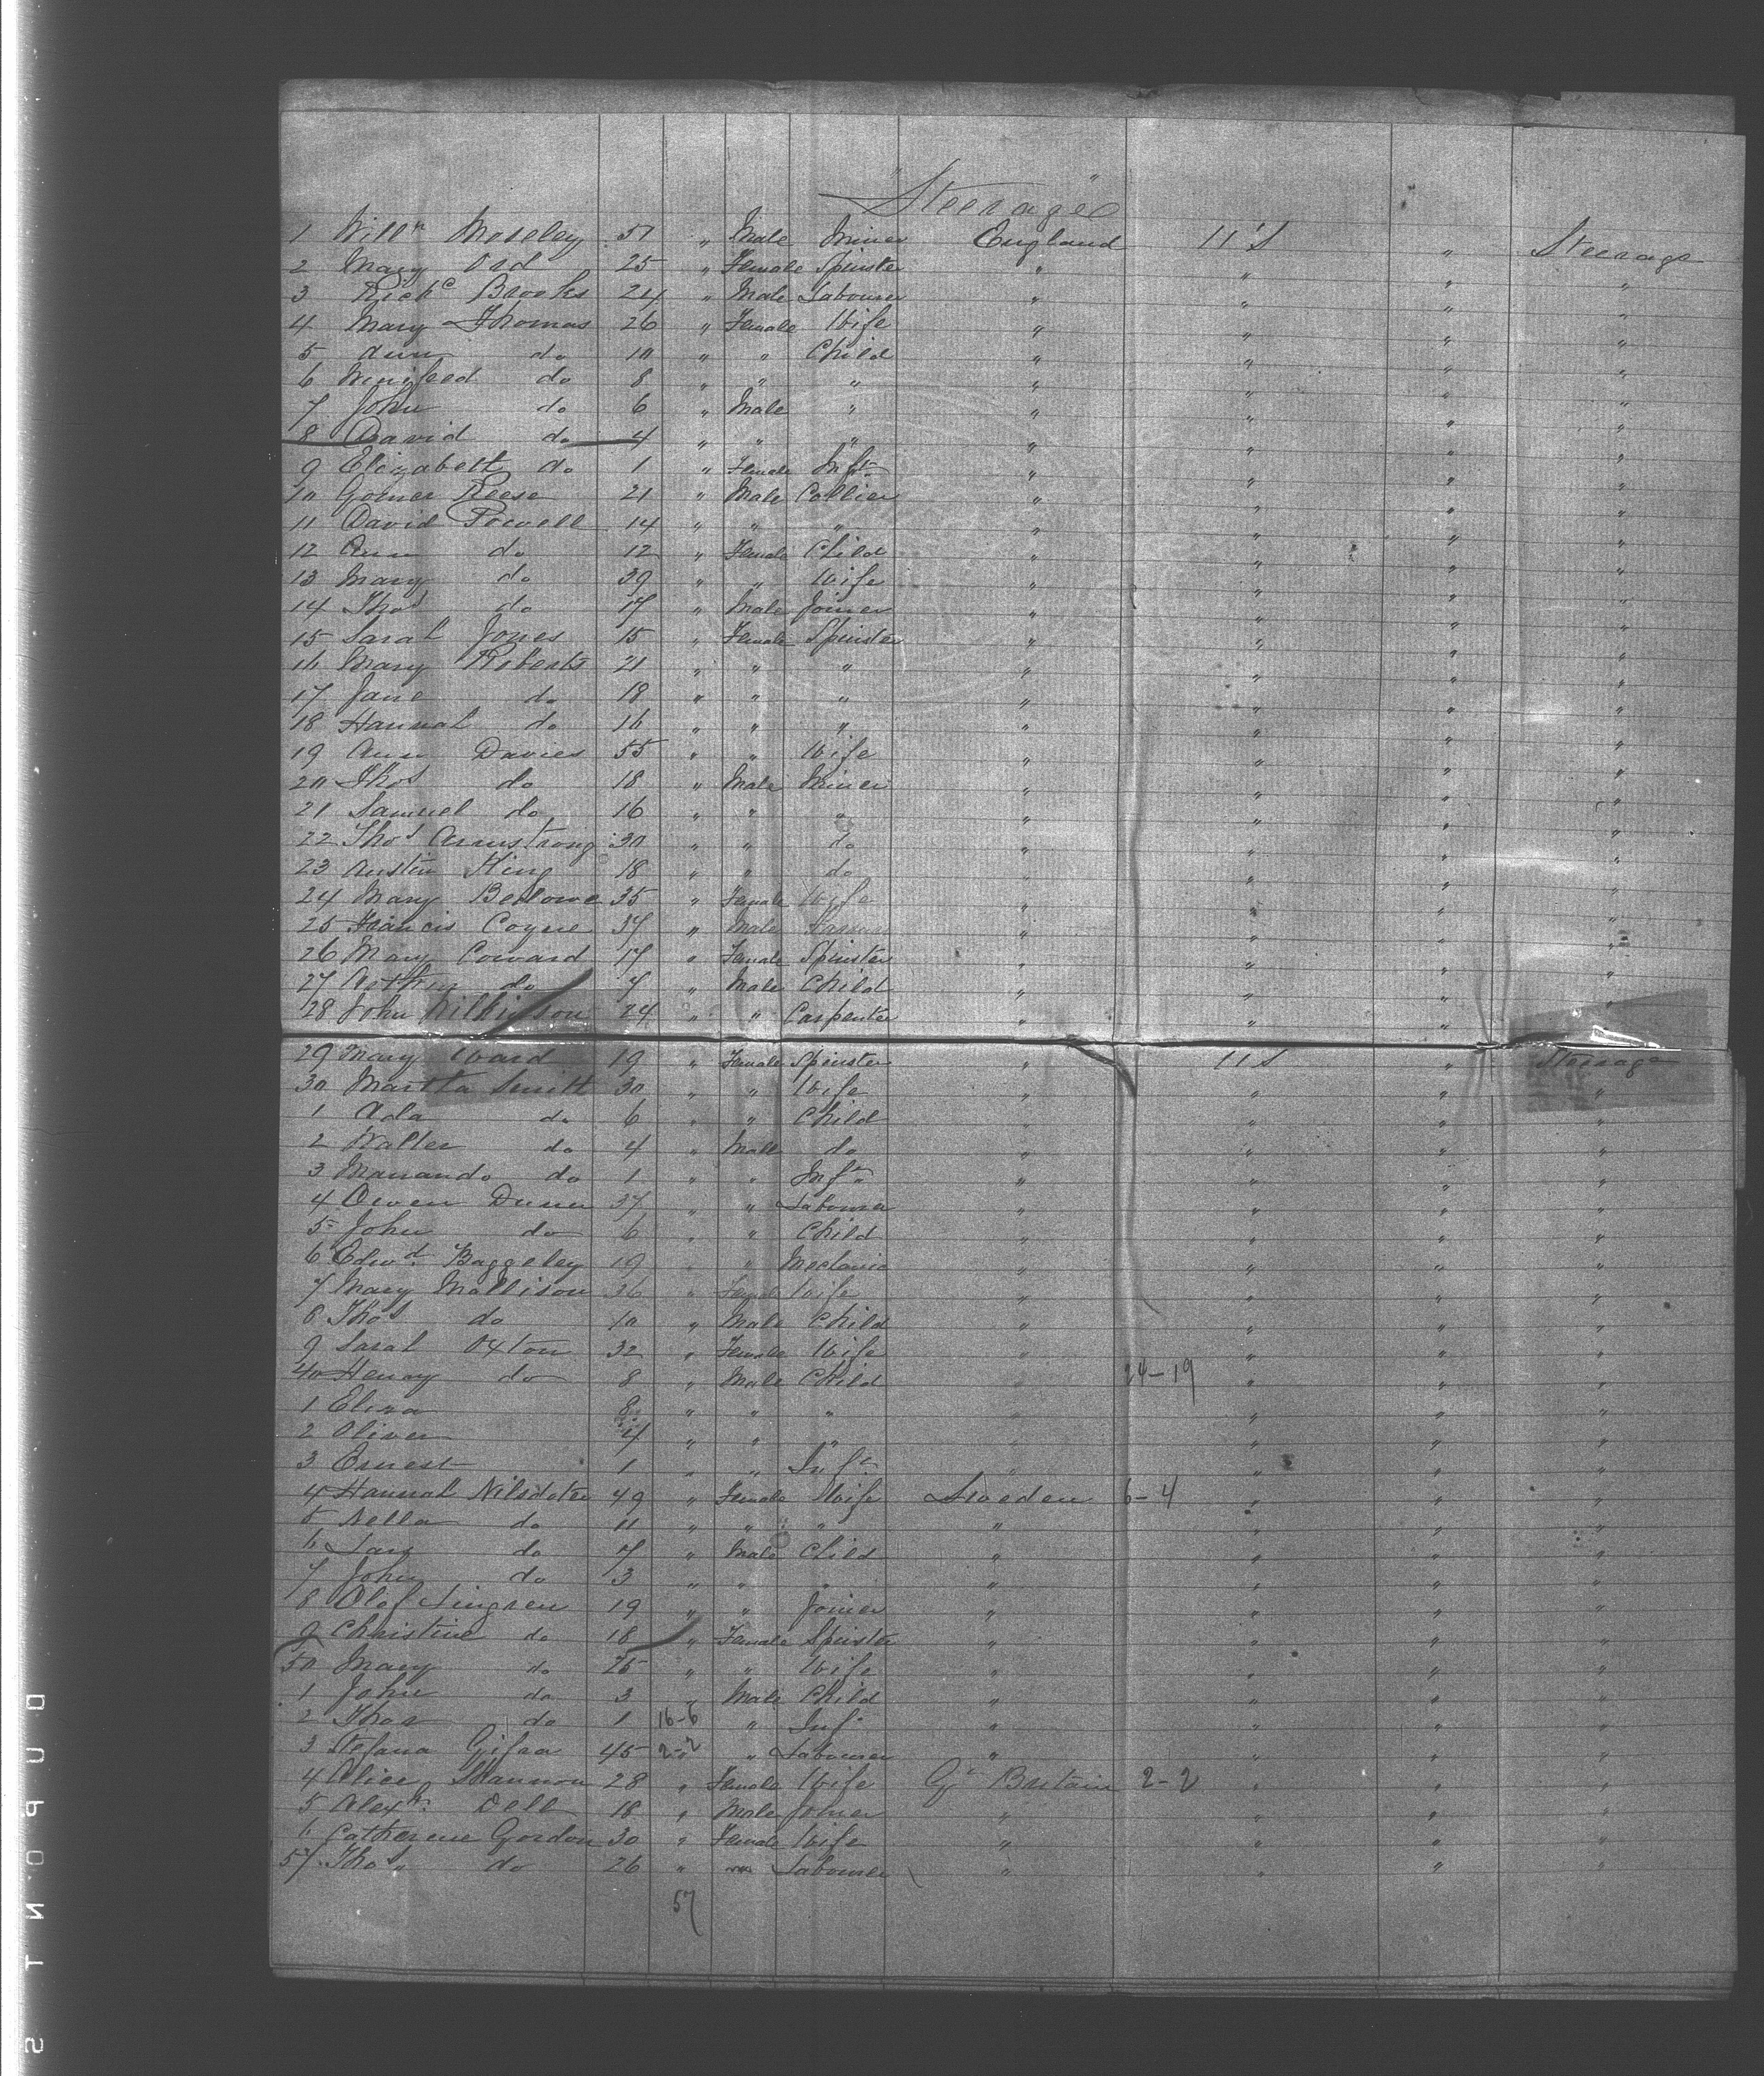 "Steerage"
1 Willm Moseley 51 " Male Miner England U S " Steerage
2 Mary Ord 25 " Female Spinster " " " "
3 Richd Brooks 24 " Male Labourer " " " "
4 Mary Thomas 26 " Female Wife " " " "
5 Ann do 10 " " Child " " " "
6 Winifred do 8 " " " " " " "
7 John do 6 " Male " " " " "
8 David do 4 " " " " " " "
9 Elizabeth do 1 " Female Inft " " " "
10 Gomer Reese 21 " Male Collier " " " "
11 David Powell 14 " " " " " " "
12 Ann do 12 " Female Child " " " "
13 Mary do 39 " " Wife " " " "
14 Thos do 17 " Male Joiner " " " "
15 Sarah Jones 15 " Female Spinster " " " "
16 Mary Roberts 21 " " " " " " "
17 Jane do 18 " " " " " " "
18 Hannah do 16 " " " " " " "
19 Ann Davies 55 " " Wife " " " "
20 Thos do 18 " Male Miner " " " "
21 Samuel do 16 " " " " " " "
22 Thos Armstrong 30 " " do " " " "
23 Austin King 18 " " do " " " "
24 Mary 35 " Female Wife " " " "
25 Francis Coyne 37 " Male " " " "
26 Mary Coward 17 " Female Spinster " " " "
27 Arthur do 7 " Male Child " " " "
28 John Wilkinson 24 " " Carpenter " " " "
29 Mary Ward 19 " Female Spinster " U S " Steerage
30 Martha Smith 30 " " Wife " " " "
1 Ada do 6 " " Child " " " "
2 Walter do 4 " Male do " " " "
3 do 1 " " Inft " " " "
4 Owen Dunn 37 " " Labourer " " " "
5 John do 6 " " Child " " " "
6 Edwd. Baggeley 19 " " Mechanic " " " "
7 Mary Mallison 36 " Female Wife " " " "
8 Thos do 10 " Male Child " " " "
9 Sarah Oxton 32 " Female Wife " " " "
40 Henry do 8 " Male Child " 24-19 " " "
1 Eliza 8 " " " " " " "
2 Oliver 4 " " " " " " "
3 Ernest 1 " " Inft " " " "
4 Hannah Nilsdoter 49 " Female Wife Sweden 6-4 " " "
5 Nella do 11 " " " " " " "
6 Lars do 7 " Male Child " " " "
7 John do 3 " " " " " " "
8 Olof Lingren 19 " " Joiner " " " "
9 Christine do 18 " Female Spinster " " " "
50 Mary do 25 " " Wife " " " "
1 John do 3 " Male Child " " " "
2 Thos do 1 16-6 " Inft " " " "
3 Stefana 45 2-2 " Labourer " " " "
4 Alice Shannon 28 " Female Wife Gt Britain 2-2 " " "
5 Alexr. Dell 18 " Male Joiner " " " "
6 Catherine Gordon 30 " Female Wife " " " "
57 Thos do 26 " Labourer " " " "
57
STNOPUD